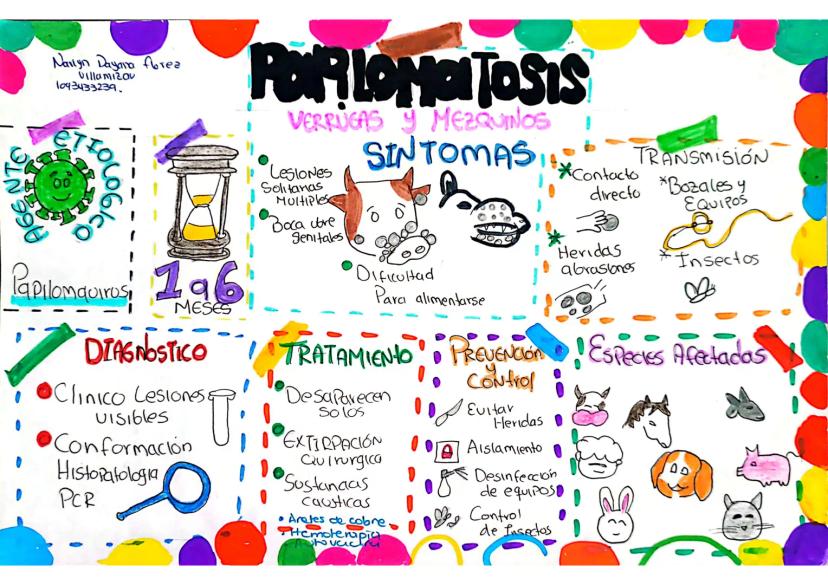 Narlyn Dayana Florez
Villamizar
1093433239.
PAPILOMATOSIS
VERRUGAS Y MEZQUINOS
AGENTE ETIOLOGICO
Papilomavirus
1 a 6
MESES
SINTOMAS
Lesiones
Solitarias
Multiples
Boca ubre
genitales
Dificultad
Para alimentarse
TRANSMISIÓN
*Contacto
directo
*Heridas
abrasiones
*Bozales y
Equipos
*Insectos
DIAGNOSTICO
Clinico Lesiones
visibles
Conformación
Histopatologia
PCR
TRATAMIENTO
Desaparecen
solos
EXTIRPACIÓN
Quirurgica
Sustancias
causticas
• Aretes de cobre
• Hemoterapia
• Autovacuna
PREVENCIÓN
y
Control
Evitar
Heridas
Aislamiento
Desinfección
de equipos
Control
de Insectos
Especies Afectadas